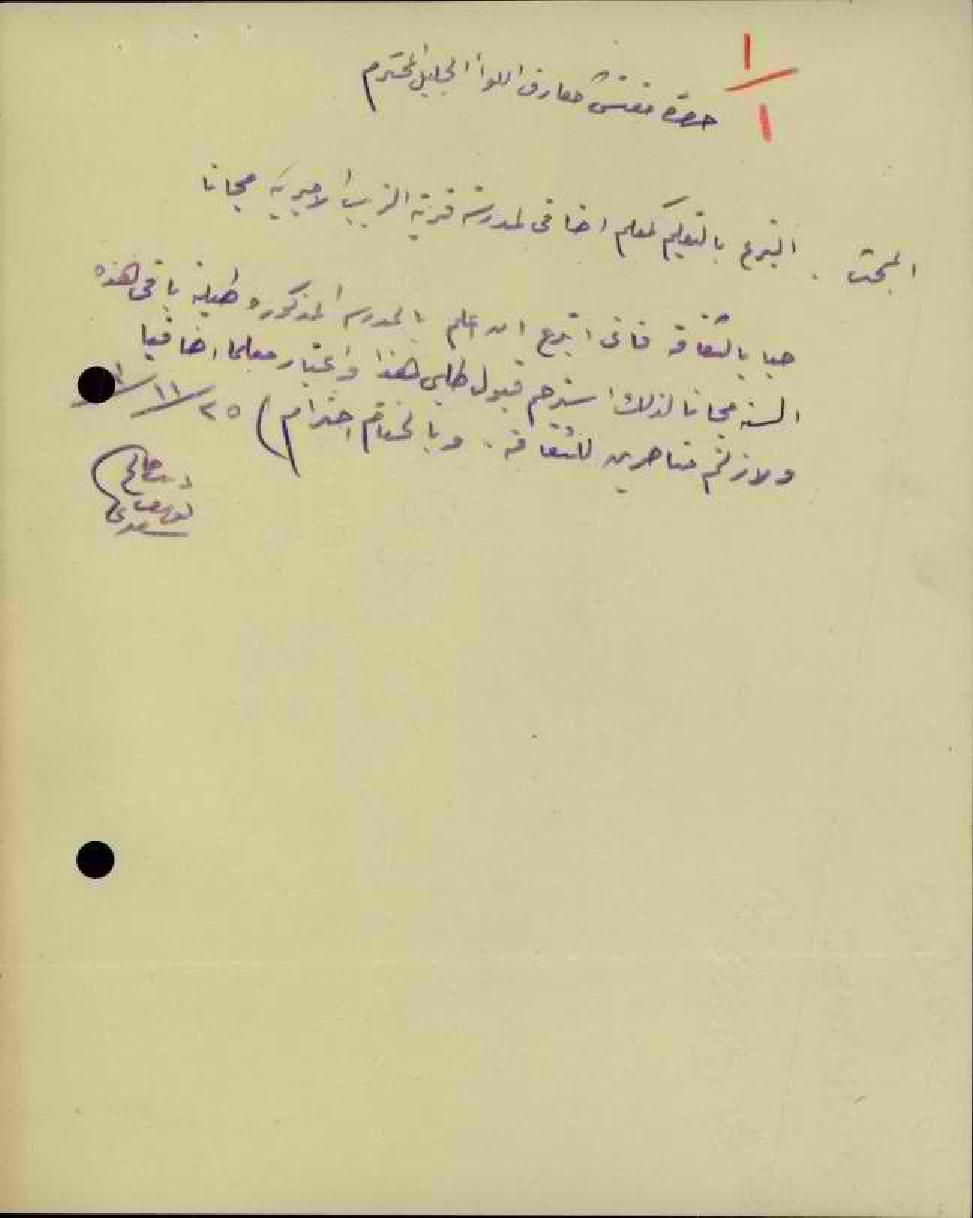 ١/١
حضرة مفتش معارف اللواء الجليل المحترم
المبحث . التبرع بالتعليم كمعلم اضافي لمدرسة قرية الزيب الاميرية مجانا
حبا بالثقافة فاني اتبرع ان اعلم بالمدرسة المذكوره طيلة باقي هذه
السنه مجانا لذلك استرحم قبول طلبي هذا واعتبار معلما اضافيا
ولازلتم مناصرين للثقافة . وبالختام احترام ٢٥/١١/
سعدي